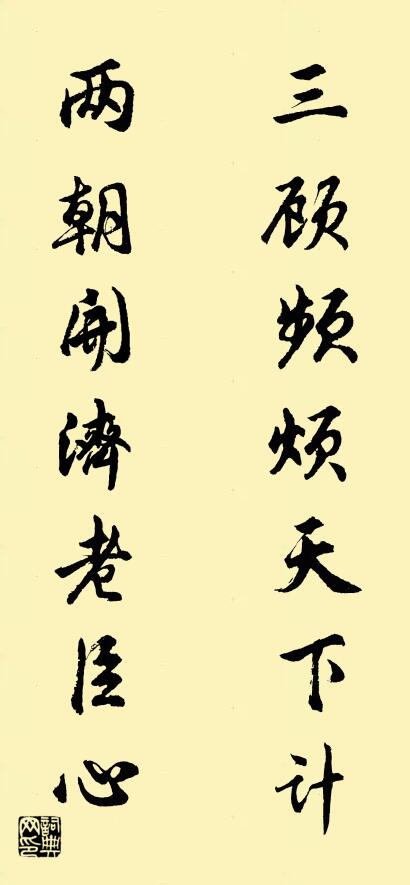 三顾频烦天下计
两朝開濟老臣心
詞典网印